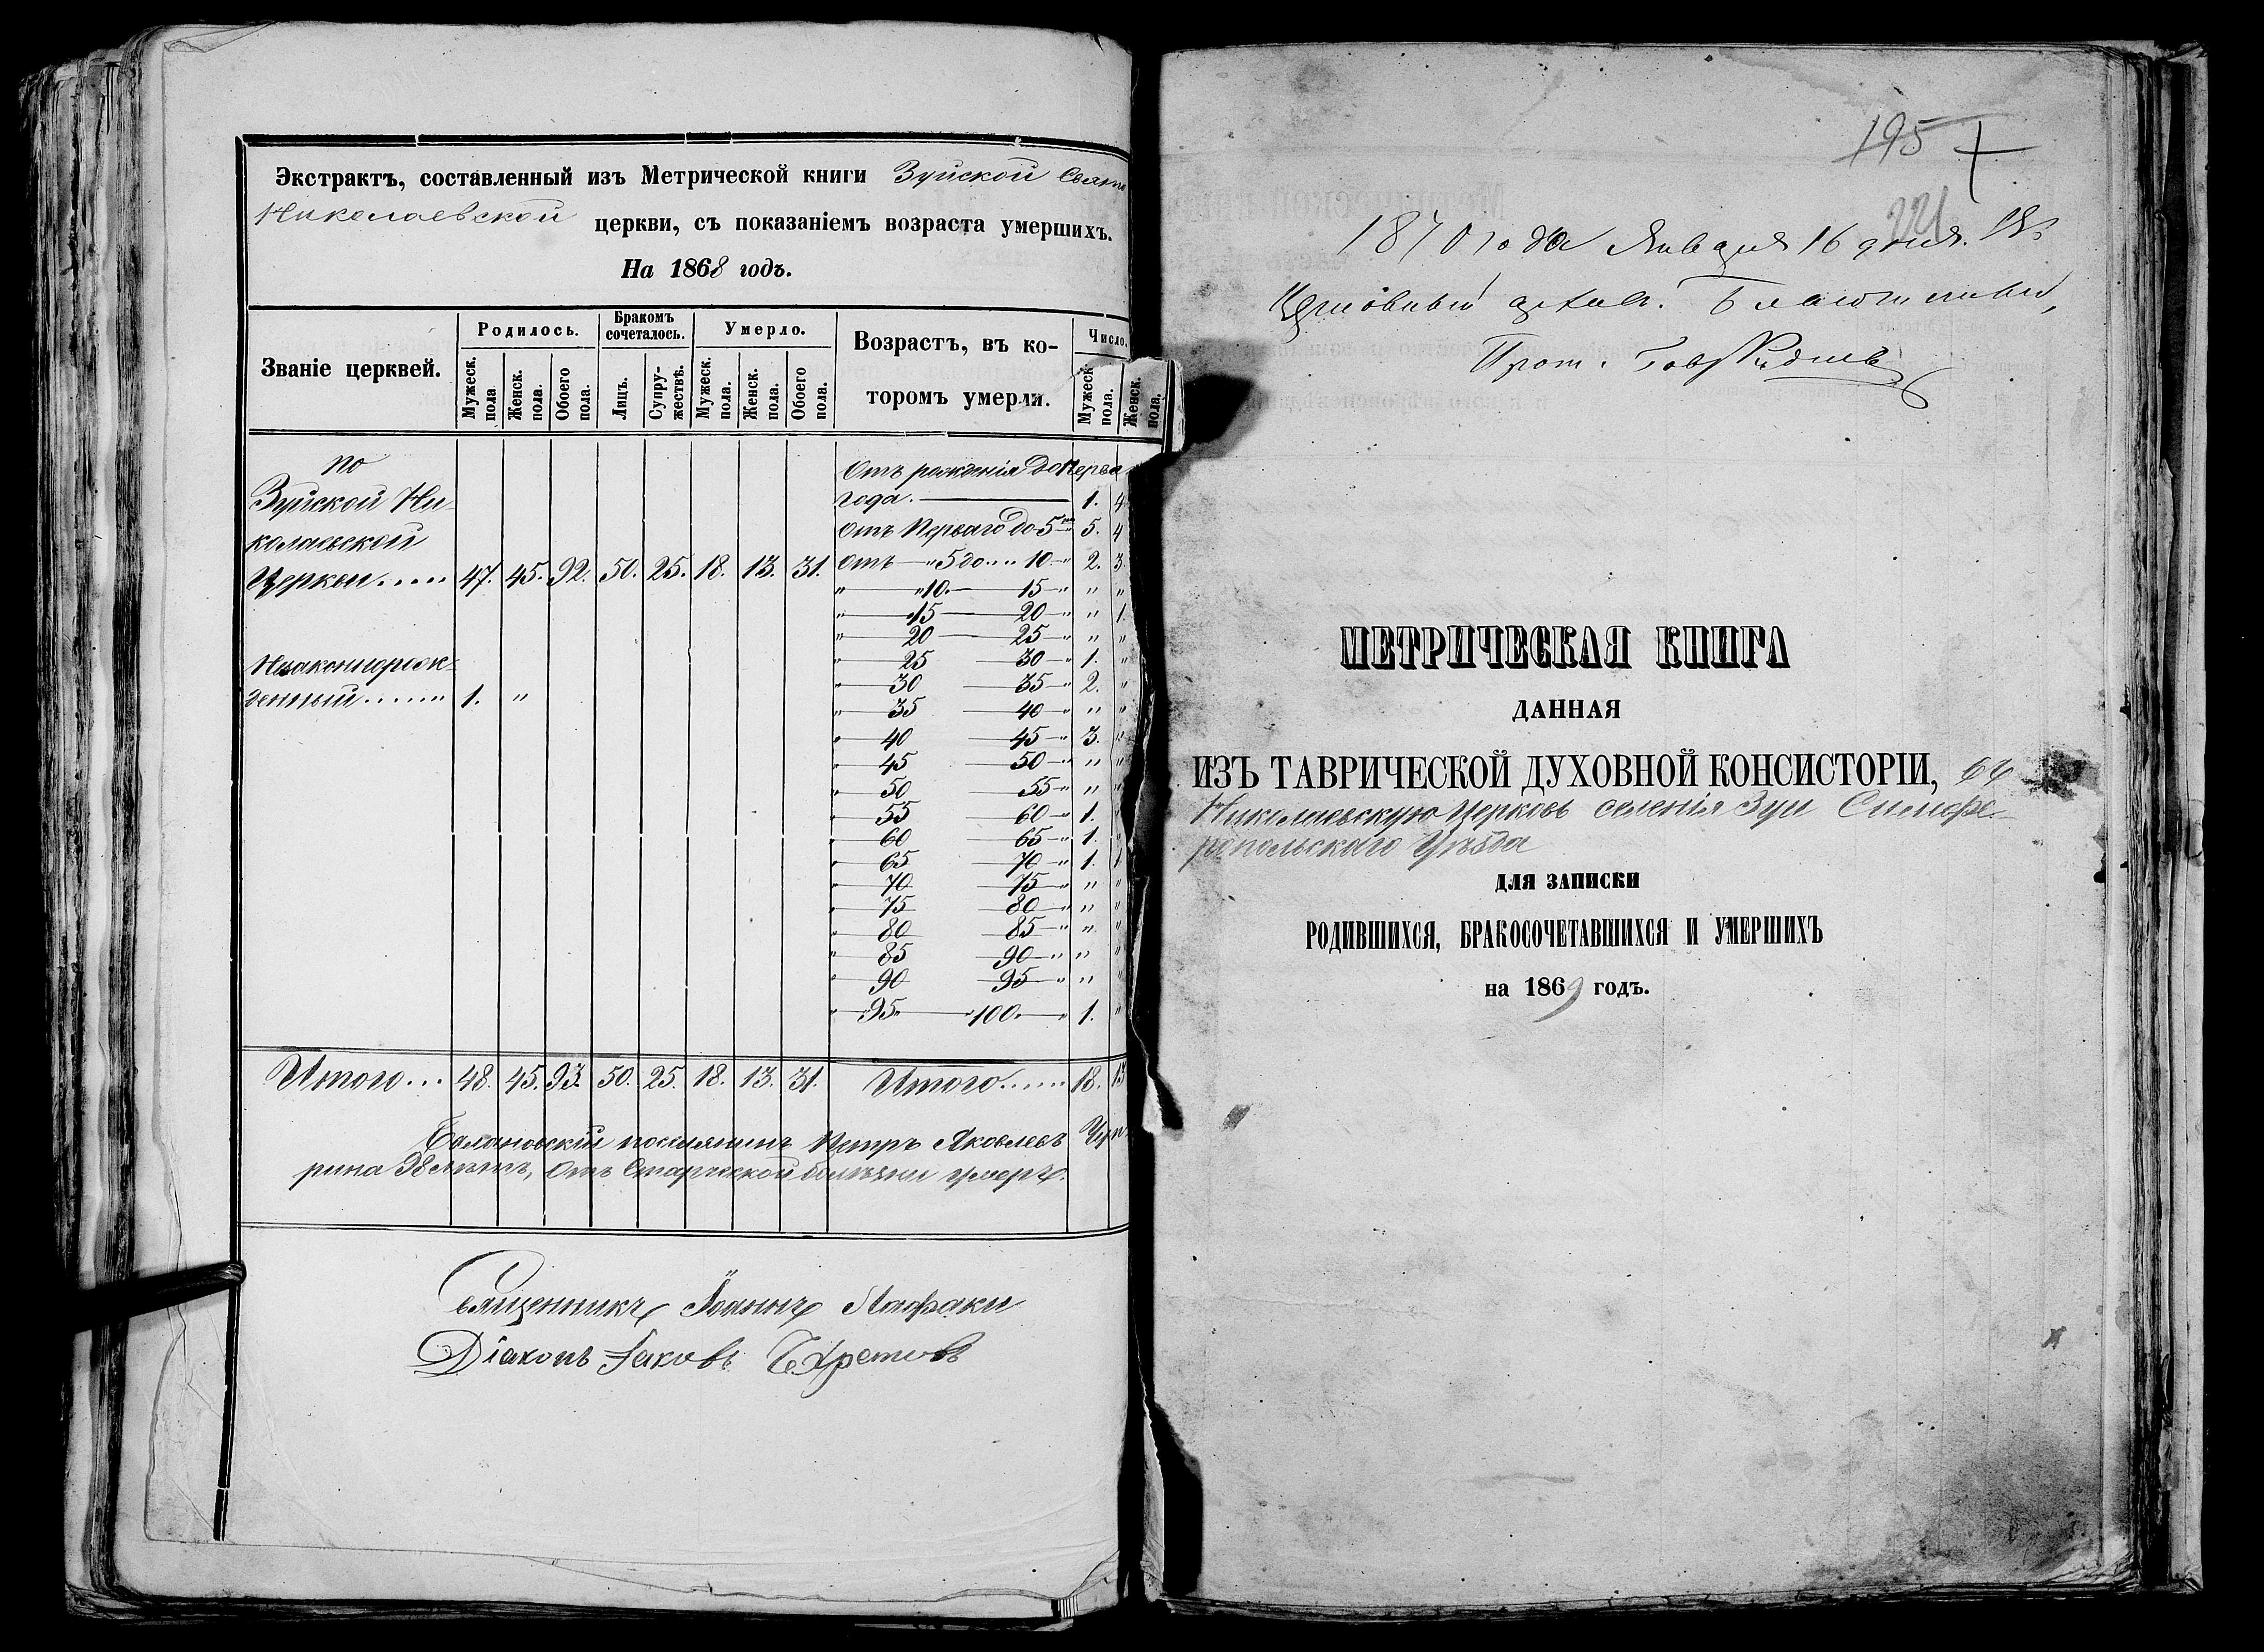 Экстрактъ, составленный изъ Метрической книги Зуйской Свято
Николаевской церкви, съ показаніемъ возраста умершихъ.
На 1868 годъ.
Званіе церквей.
Родилось.
Мужеск. пола
Женск. пола.
Обоего пола.
Бракомъ сочеталось.
Лицъ.
Супружествъ.
Умерло.
Мужеск. пола.
Женск. пола.
Обоего пола.
Возрастъ, въ ко-
торомъ умерли.
Число.
Мужеск. пола.
Женск. пола.
по
Зуйской Ни-
колаевской
Церкви..... 47. 45. 92. 50. 25. 18. 13. 31.
Незаконнорож-
денный....... 1. "
Отъ рожденія до перва
года. — 1. 4
Отъ Перваго до 5 " 5. 4
Отъ — " 5 до " " 10 — " 2. 3.
" — " 10 — 15 — " " "
" — 15 — 20 — " " 1.
" — 20 — 25 — " " "
" — 25 — 30 — " 1. "
" — 30 — 35 — " 2. "
" — 35 — 40 — " " "
" — 40 — 45 — " 3. "
" — 45 — 50 — " " "
" — 50 — 55 — " " "
" — 55 — 60 — " 1. "
" — 60 — 65 — " 1. "
" — 65 — 70 — " 1. 1
" — 70 — 75 — " " "
" — 75 — 80 — " " "
" — 80 — 85 — " " "
" — 85 — 90 — " " "
" — 90 — 95 — " " "
" — 95 — 100 — " 1. "
Итого... 48. 45. 93. 50. 25. 18. 13. 31. Итого...... 18. 13
поселянинъ Петръ Яковлевъ
рина 98 лѣтъ, отъ Старческой болѣзни умеръ.
Священникъ Іоаннъ Лафаки
Діаконъ Іаковъ
195
221
1870 года Января 16 дня. Въ
Церковный архивъ.
Прот.
МЕТРИЧЕСКАЯ КНИГА
ДАННАЯ
ИЗЪ ТАВРИЧЕСКОЙ ДУХОВНОЙ КОНСИСТОРІИ, въ
Николаевскую Церковь селенія Зуи Симфе-
ропольскаго Уѣзда
ДЛЯ ЗАПИСКИ
РОДИВШИХСЯ, БРАКОСОЧЕТАВШИХСЯ И УМЕРШИХЪ
на 1869 годъ.